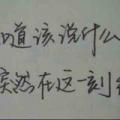 道该说什么
突然在这一刻